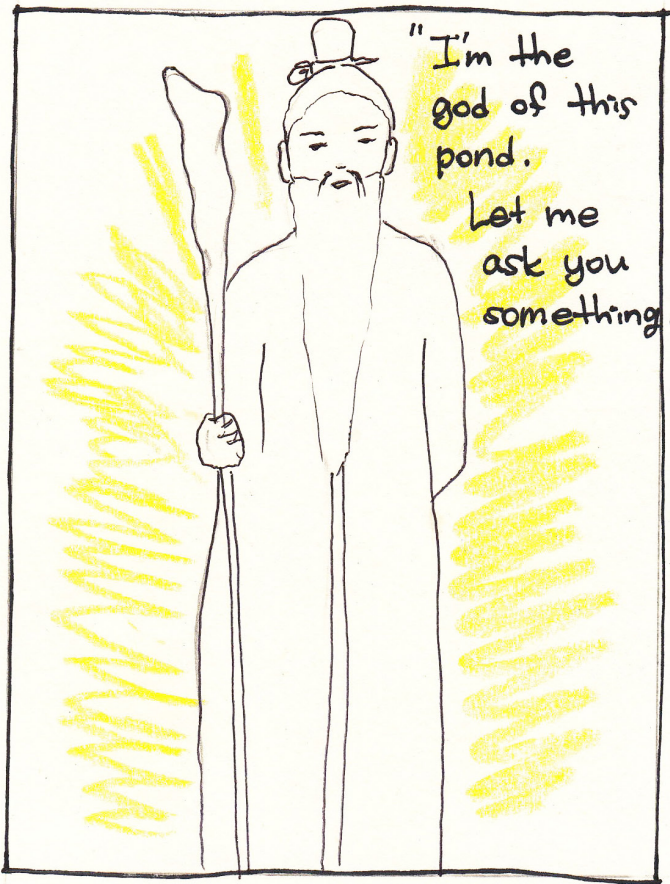 "I'm the
god of this
pond.
Let me
ask you
something